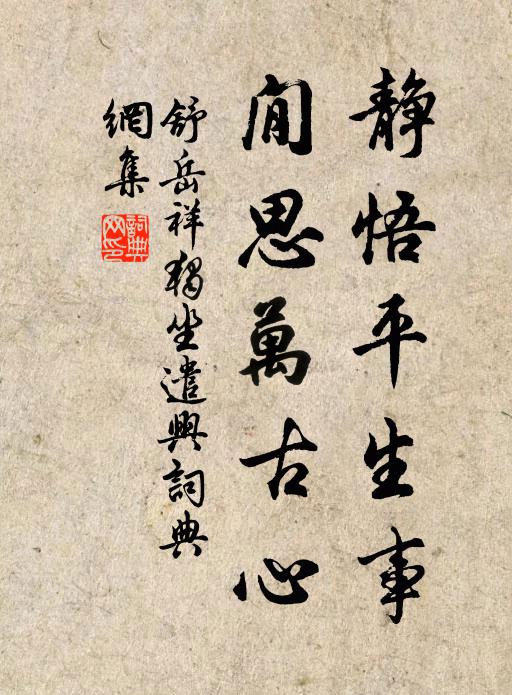 静悟平生事
閒思萬古心
舒岳祥獨坐遣興詞典
網集
詞典網印